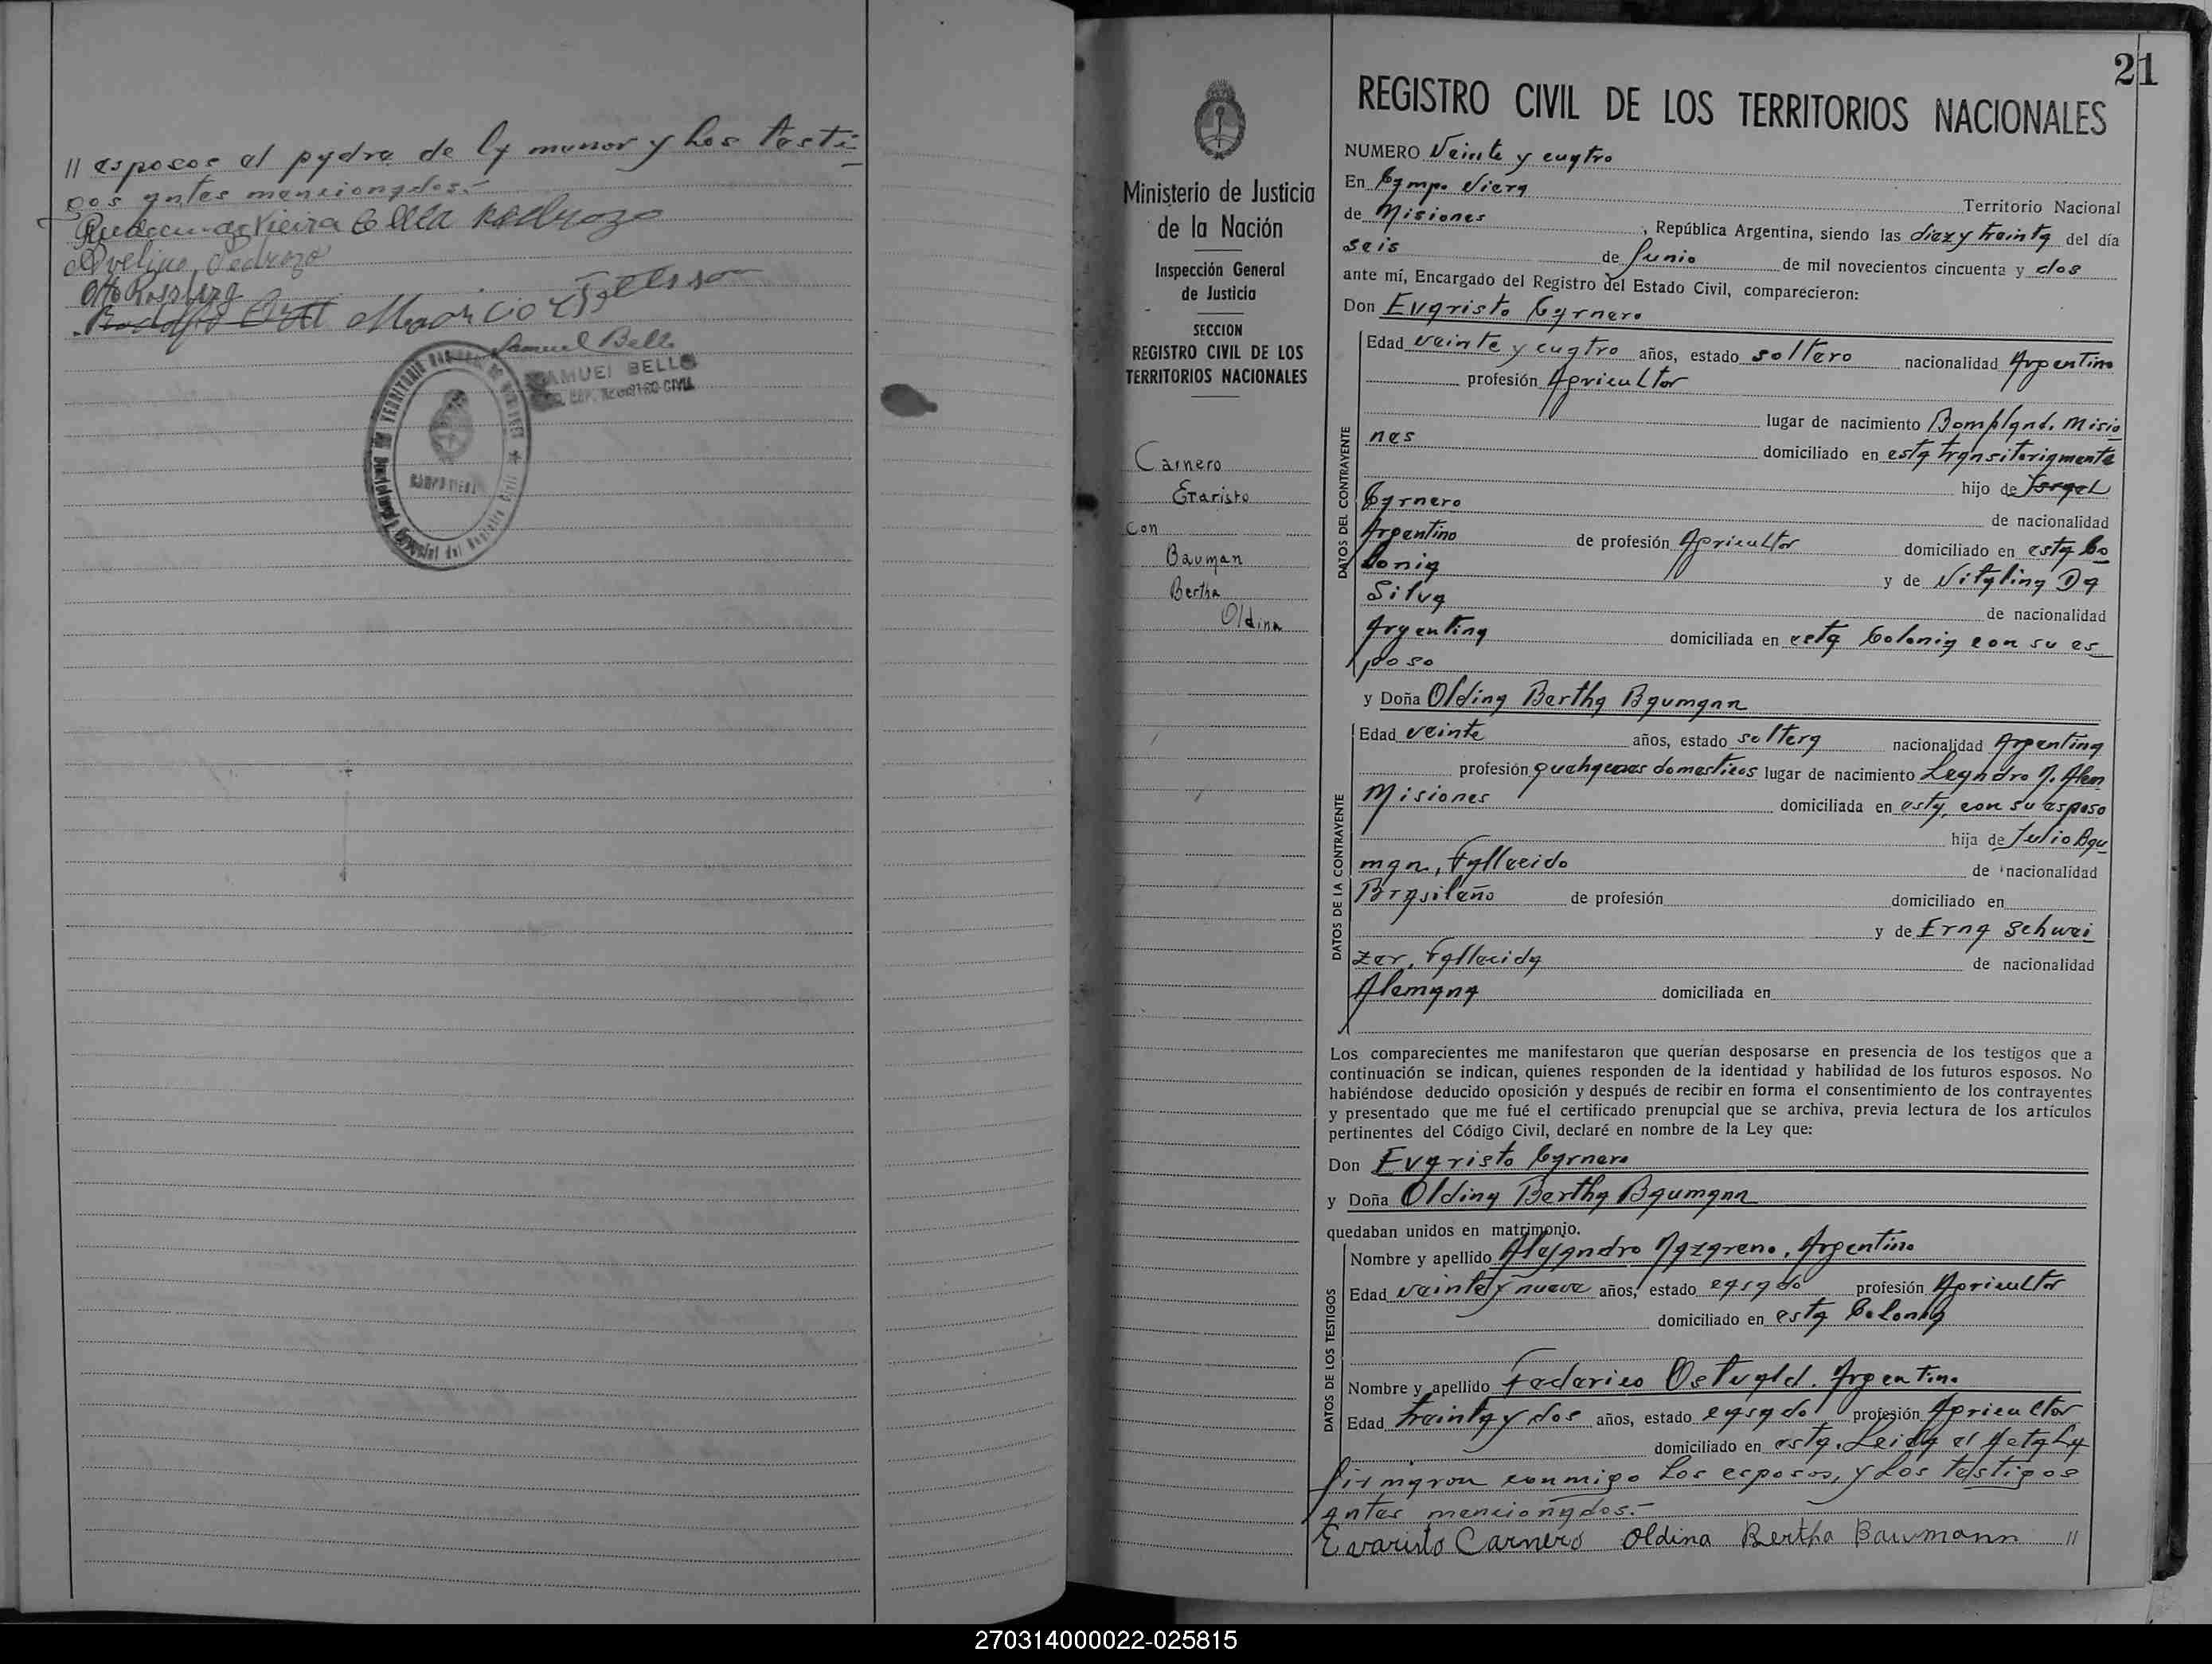 // esposos el padre de la menor y los testi-
gos antes mencionados.-
Vieira Pedrozo
Avelino Pedrozo
Otto
Mauricio
Samuel Bello
SAMUEL BELLO
REGISTRO CIVIL
21
Ministerio de Justicia
de la Nación
Inspección General
de Justicia
SECCION
REGISTRO CIVIL DE LOS
TERRITORIOS NACIONALES
Carnero
Evaristo
con
Bauman
Bertha
Oldina
REGISTRO CIVIL DE LOS TERRITORIOS NACIONALES
NUMERO Veinte y cuatro
En Campo Viera Territorio Nacional
de Misiones, República Argentina, siendo las diez y treinta del día
seis de Junio de mil novecientos cincuenta y dos
ante mí, Encargado del Registro del Estado Civil, comparecieron:
Don Evaristo Carnero
DATOS DEL CONTRAYENTE
Edad veinte y cuatro años, estado soltero nacionalidad Argentino
profesión Agricultor
lugar de nacimiento Bompland, Misio
nes domiciliado en esta transitoriamente
hijo de Israel
Carnero de nacionalidad
Argentino de profesión Agricultor domiciliado en esta Co
lonia y de Vitalina Da
Silva de nacionalidad
Argentina domiciliada en esta Colonia con su es-
poso
y Doña Oldina Bertha Baumann
DATOS DE LA CONTRAYENTE
Edad veinte años, estado soltera nacionalidad Argentina
profesión quehaceres domesticos lugar de nacimiento Leandro N. Alem
Misiones domiciliada en esta, con su esposo
hija de Julio Bau
man, Fallecido de nacionalidad
Brasileño de profesión domiciliado en
y de Erna Schwei
zer, Fallecida de nacionalidad
Alemana domiciliada en
Los comparecientes me manifestaron que querían desposarse en presencia de los testigos que a
continuación se indican, quienes responden de la identidad y habilidad de los futuros esposos. No
habiéndose deducido oposición y después de recibir en forma el consentimiento de los contrayentes
y presentado que me fué el certificado prenupcial que se archiva, previa lectura de los artículos
pertinentes del Código Civil, declaré en nombre de la Ley que:
Don Evaristo Carnero
y Doña Oldina Bertha Baumann
quedaban unidos en matrimonio.
DATOS DE LOS TESTIGOS
Nombre y apellido Alejandro Nazareno, Argentino
Edad veinte y nueve años, estado casado profesión Agricultor
domiciliado en esta Colonia
Nombre y apellido Federico Ostvald, Argentino
Edad treinta y dos años, estado casado profesión Agricultor
domiciliado en esta. Leida el Acta La
firmaron conmigo los esposos, y los testigos
antes mencionados.-
Evaristo Carnero Oldina Bertha Baumann //
270314000022-025815